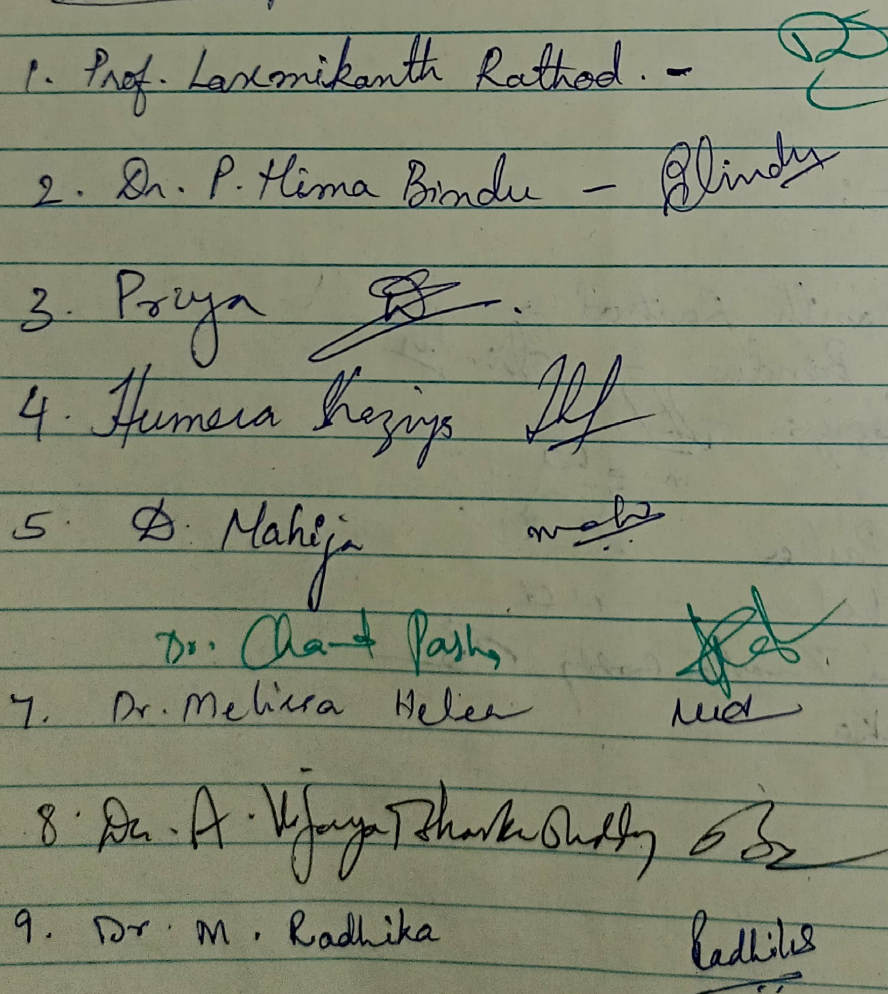 1. Prof. Laxmikanth Rathod. -
2. Dr. P. Hima Bindu - Bindu
3. Priya
4. Humera Shaziya
5. D. Mahija
Dr. Chand Pasha
7. Dr. Melissa Helen
8. Dr. A. Vijaya Bhasker Reddy
9. Dr. M. Radhika Radhika